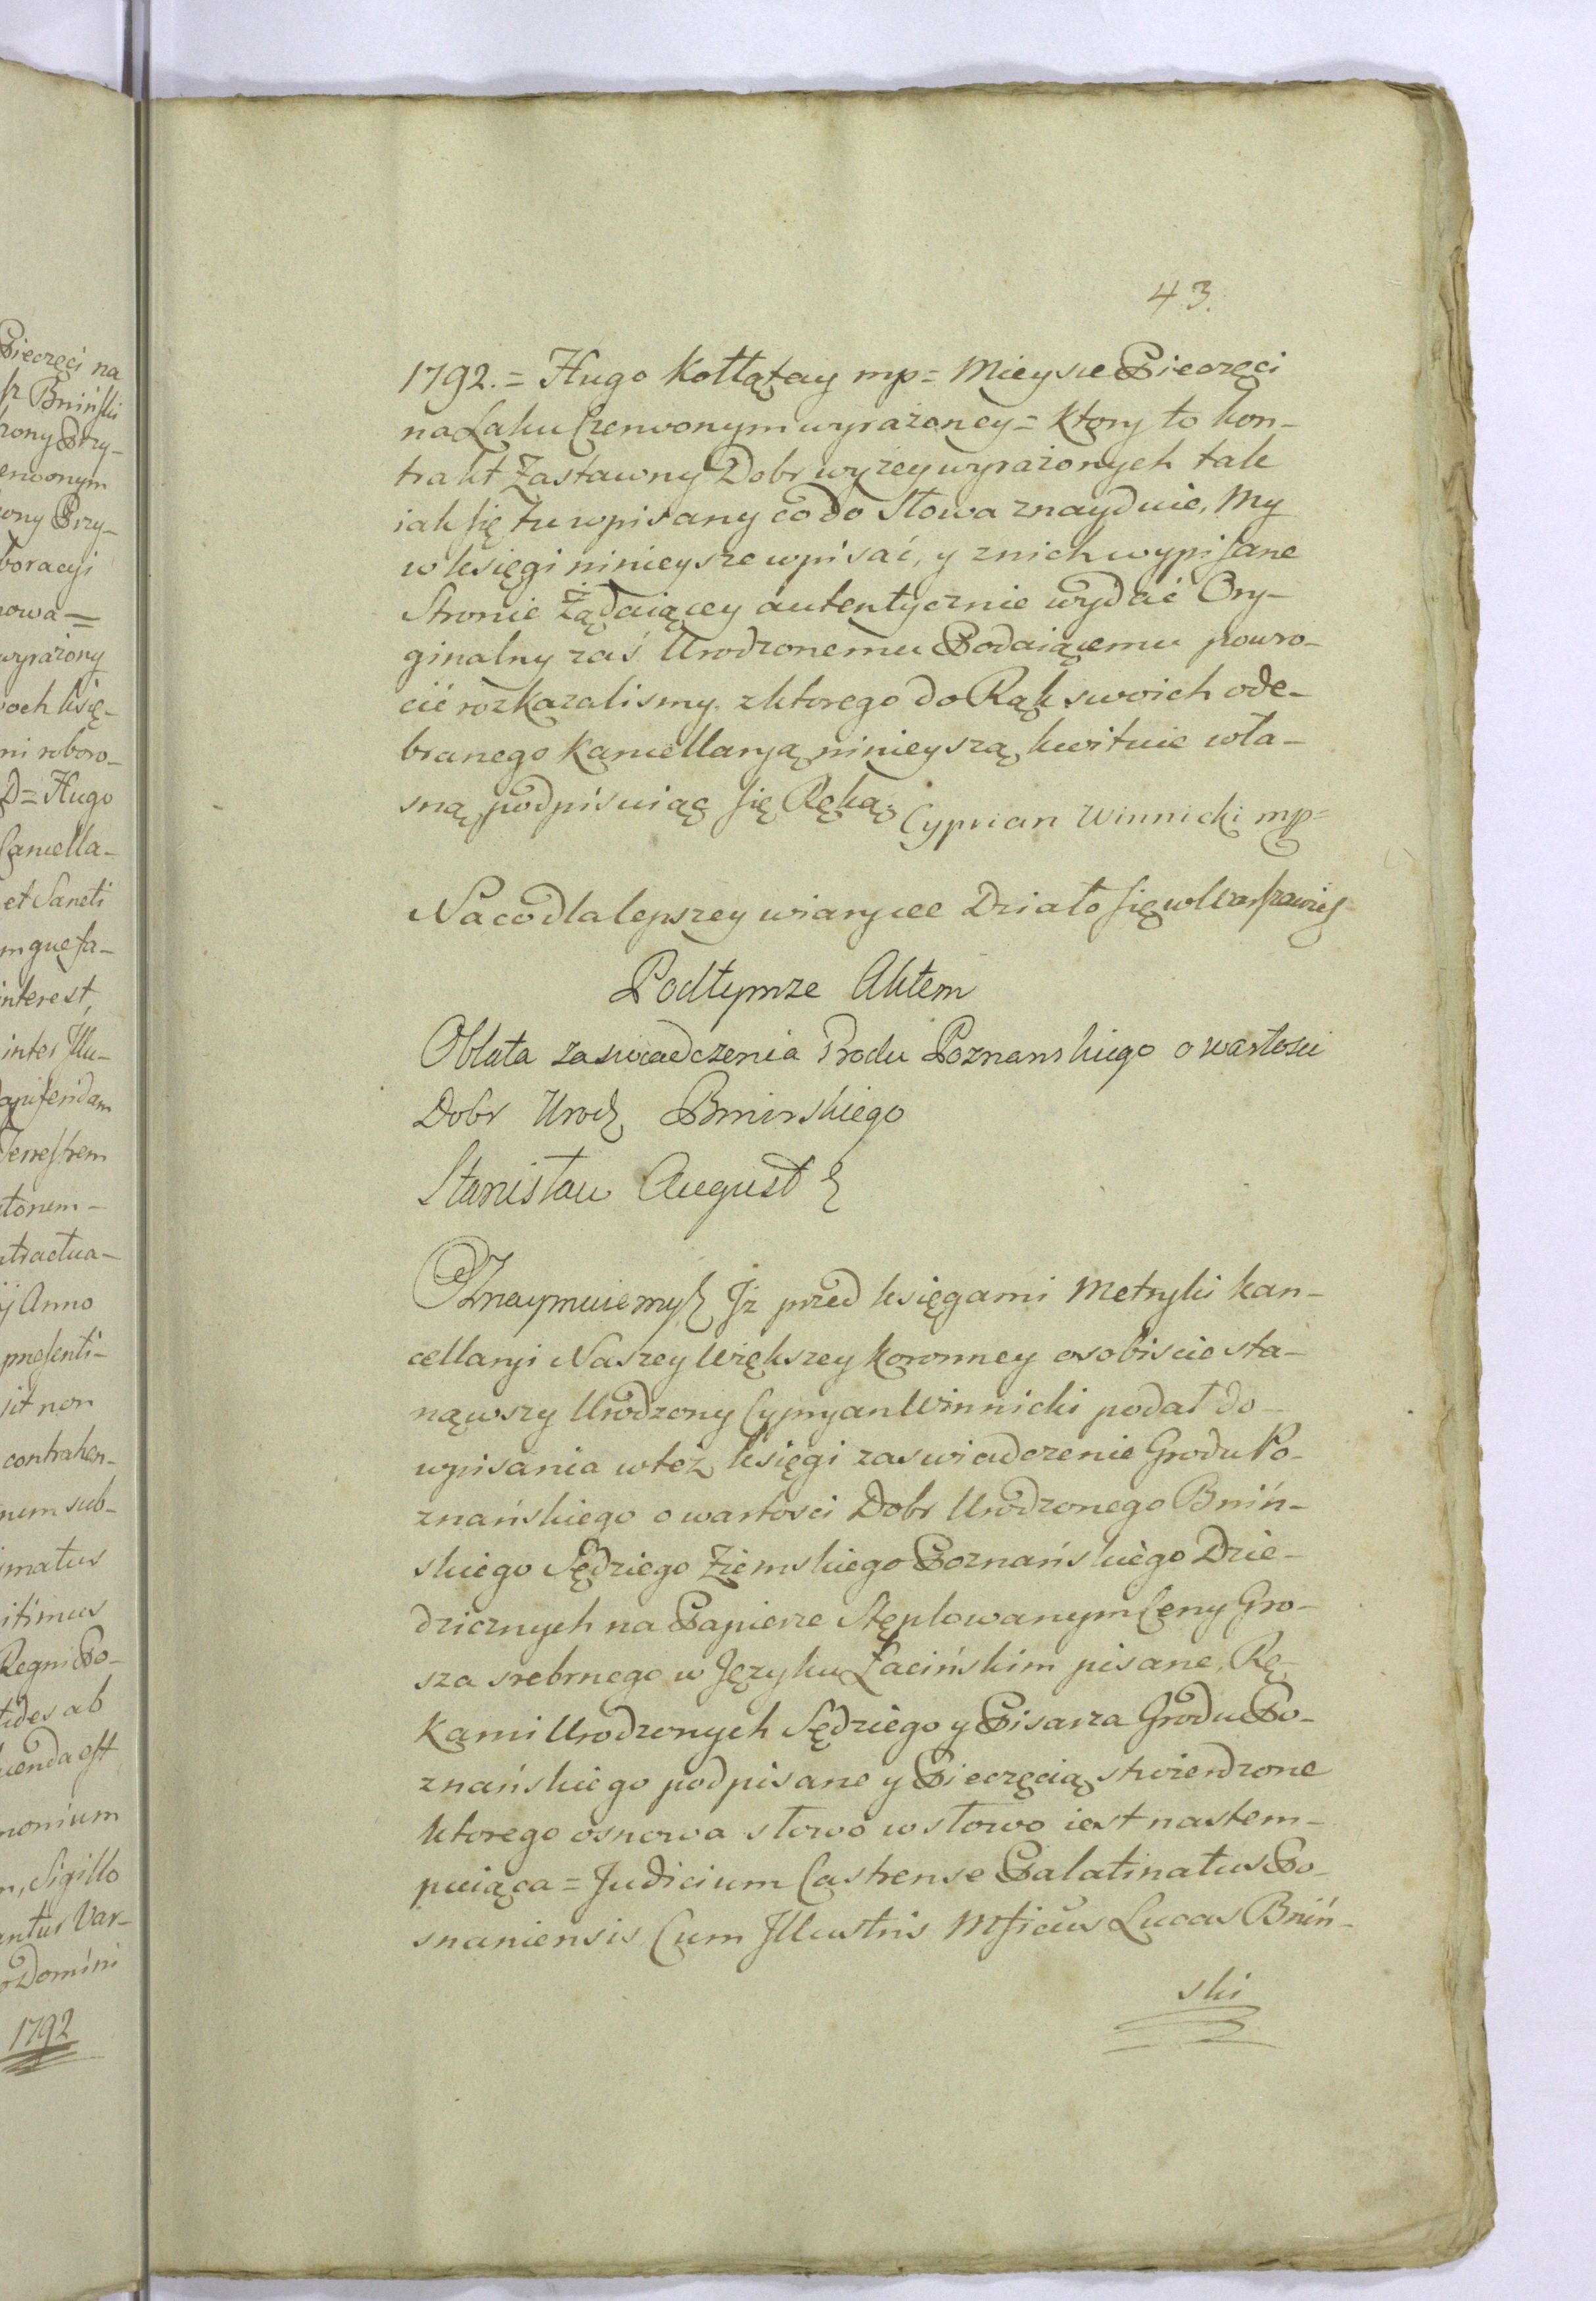 43.
1792. = Hugo Kołłątay mp = Mieysce Pieczęci
na Laku Czerwonym wyrażoney = Ktory to kon-
trakt Zastawny Dobr wyżey wyrażonych tak
iak się tu wpisany co do Słowa znayduie, My
w księgi ninieysze wpisać, y z nich wypisane
Stronie Żądaiącey autentycznie wydać Ory-
ginalny zaś Urodzonemu Podaiącemu powro-
cić rozkazalismy. z ktorego do Rąk swoich ode-
branego Kancellaryą ninieyszą kwituie wła-
sną podpisuiąc się Ręką. Cyprian Winnicki mp =
Na co dla lepszey wiary ece Działo się w Warszawie
Pod tymże Aktem
Oblata zaswiadczenia Grodu Poznanskiego o wartosci
Dobr Urodz Bninskiego
Stanisław August
Oznaymuiemy Jż przed księgami Metryki kan-
cellaryi Naszey Większey koronney osobiscie sta-
nąwszy Urodzony Cypryan Winnicki podał do-
wpisania w też księgi zaswiadczenie Grodu Po-
znańskiego o wartosci Dobr Urodzonego Bniń-
skiego Sędziego Ziemskiego Poznańskiego Dzie-
dzicznych na Papierze Stęplowanym Ceny Gro-
sza srebrnego w Języku Łacińskim pisane, Rę-
kami Urodzonych Sędziego y Pisarza Grodu Po-
znańskiego podpisane y Pieczęcią stwierdzone
ktorego osnowa słowo w słowo iest nastem-
puiąca = Judicium Castrense Palatinatus Po-
snaniensis Cum Jllustris Mficus Lucas Bniń-
ski
Pieczęci na
Bniński
rony Przy-
erwonym
ony Przy-
boracyi
nowa =
wyrażony
och księ-
ni roboro-
D = Hugo
Cancella-
et Sancti
interest,
inter Jllu-
Terrestrem
ctonem-
ntractua-
ij Anno
presenti-
sit non
contrahen-
num sub-
imatus
itimus
Regni Po-
tudes ab
uenda est
monium
m, Sigillo
antur Var-
o Domini
1792